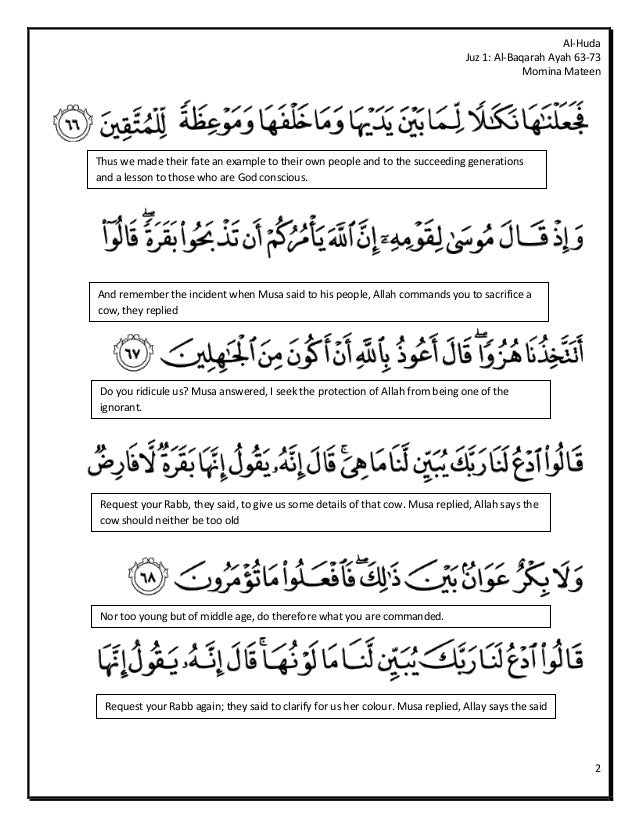 Al-Huda
Juz 1: Al-Baqarah Ayah 63-73
Momina Mateen
فَجَعَلْنَٰهَا نَكَٰلًا لِّمَا بَيْنَ يَدَيْهَا وَمَا خَلْفَهَا وَمَوْعِظَةً لِّلْمُتَّقِينَ ٦٦
Thus we made their fate an example to their own people and to the succeeding generations
and a lesson to those who are God conscious.
وَإِذْ قَالَ مُوسَىٰ لِقَوْمِهِۦٓ إِنَّ ٱللَّهَ يَأْمُرُكُمْ أَن تَذْبَحُوا۟ بَقَرَةً ۖ قَالُوٓا۟
And remember the incident when Musa said to his people, Allah commands you to sacrifice a
cow, they replied
أَتَتَّخِذُنَا هُزُوًا ۖ قَالَ أَعُوذُ بِٱللَّهِ أَنْ أَكُونَ مِنَ ٱلْجَٰهِلِينَ ٦٧
Do you ridicule us? Musa answered, I seek the protection of Allah from being one of the
ignorant.
قَالُوا۟ ٱدْعُ لَنَا رَبَّكَ يُبَيِّن لَّنَا مَا هِىَ ۚ قَالَ إِنَّهُۥ يَقُولُ إِنَّهَا بَقَرَةٌ لَّا فَارِضٌ
Request your Rabb, they said, to give us some details of that cow. Musa replied, Allah says the
cow should neither be too old
وَلَا بِكْرٌ عَوَانٌۢ بَيْنَ ذَٰلِكَ ۖ فَٱفْعَلُوا۟ مَا تُؤْمَرُونَ ٦٨
Nor too young but of middle age, do therefore what you are commanded.
قَالُوا۟ ٱدْعُ لَنَا رَبَّكَ يُبَيِّن لَّنَا مَا لَوْنُهَا ۚ قَالَ إِنَّهُۥ يَقُولُ إِنَّهَا
Request your Rabb again; they said to clarify for us her colour. Musa replied, Allay says the said
2